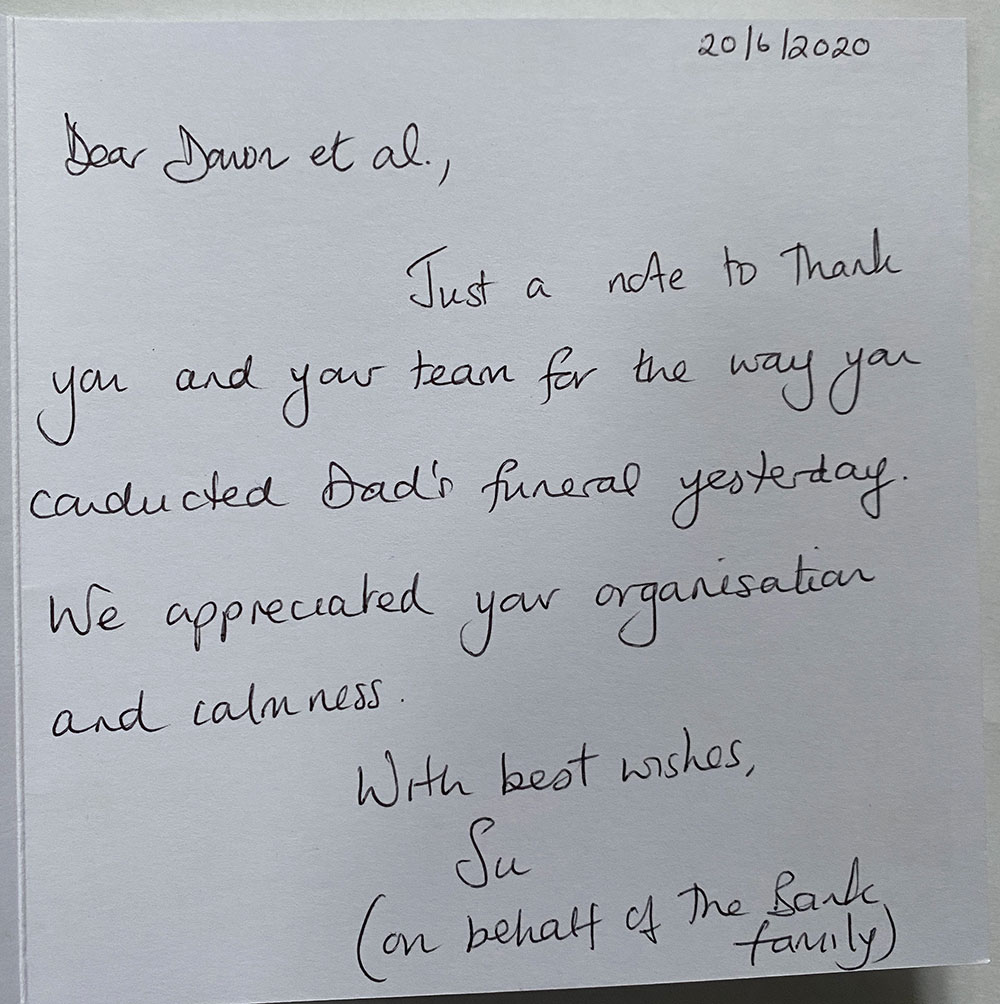 20/6/2020
Dear Dawn et al.,
Just a note to thank
you and your team for the way you
conducted Dad's funeral yesterday.
We appreciated your organisation
and calmness.
With best wishes,
Su
(on behalf of the Bank
family)